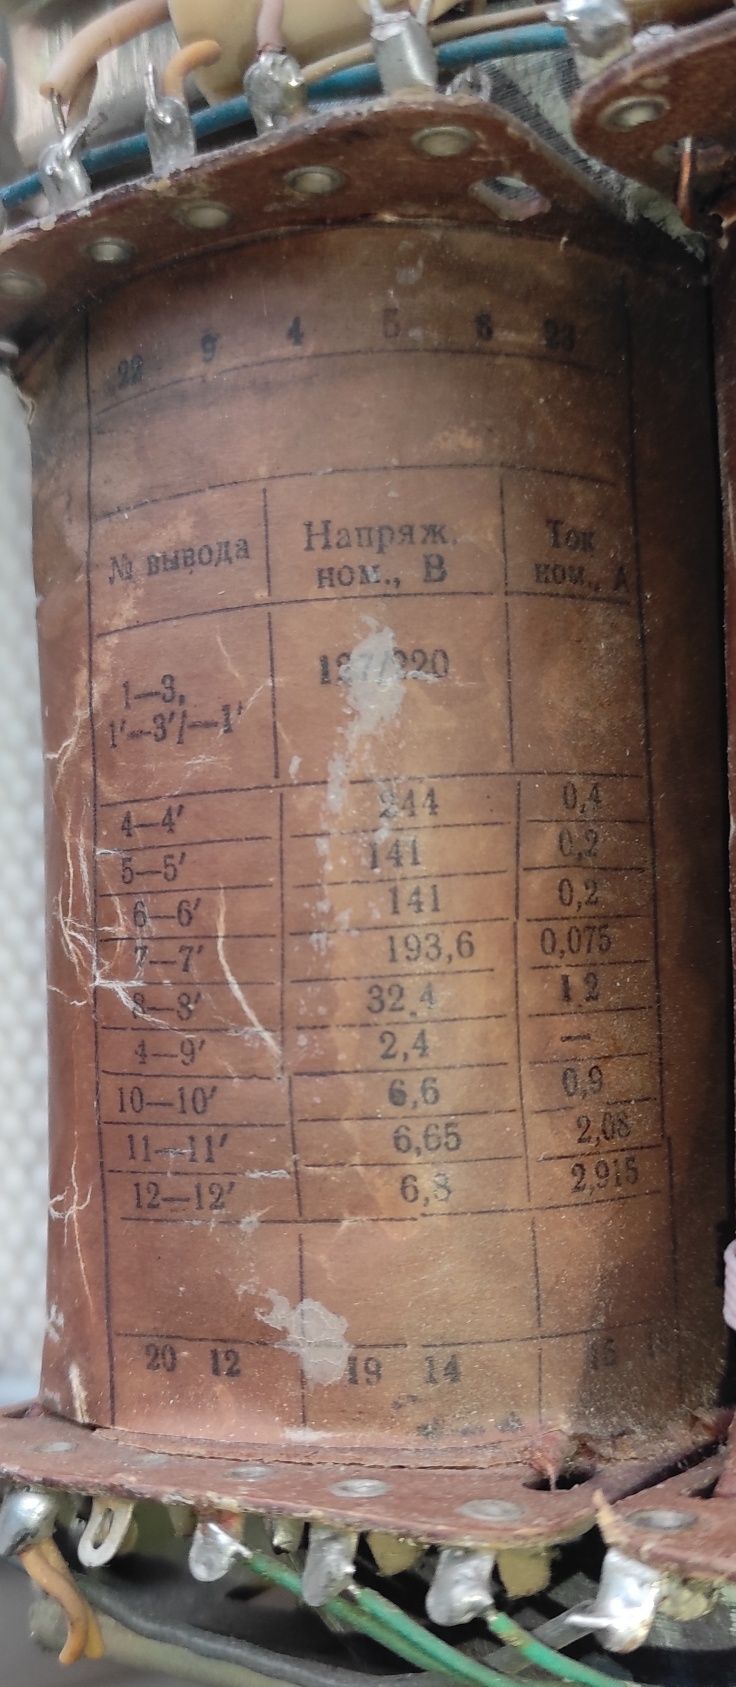 22 9 4 5 6 23
№ вывода Напряж. ном., В Ток ном., А
1—3, 1′—3′/—1′ 127/220
4—4′ 244 0,4
5—5′ 141 0,2
6—6′ 141 0,2
7—7′ 193,6 0,075
8—8′ 32,4 1,2
4—9′ 2,4 —
10—10′ 6,6 0,9
11—11′ 6,65 2,08
12—12′ 6,8 2,915
20 12 19 14 15